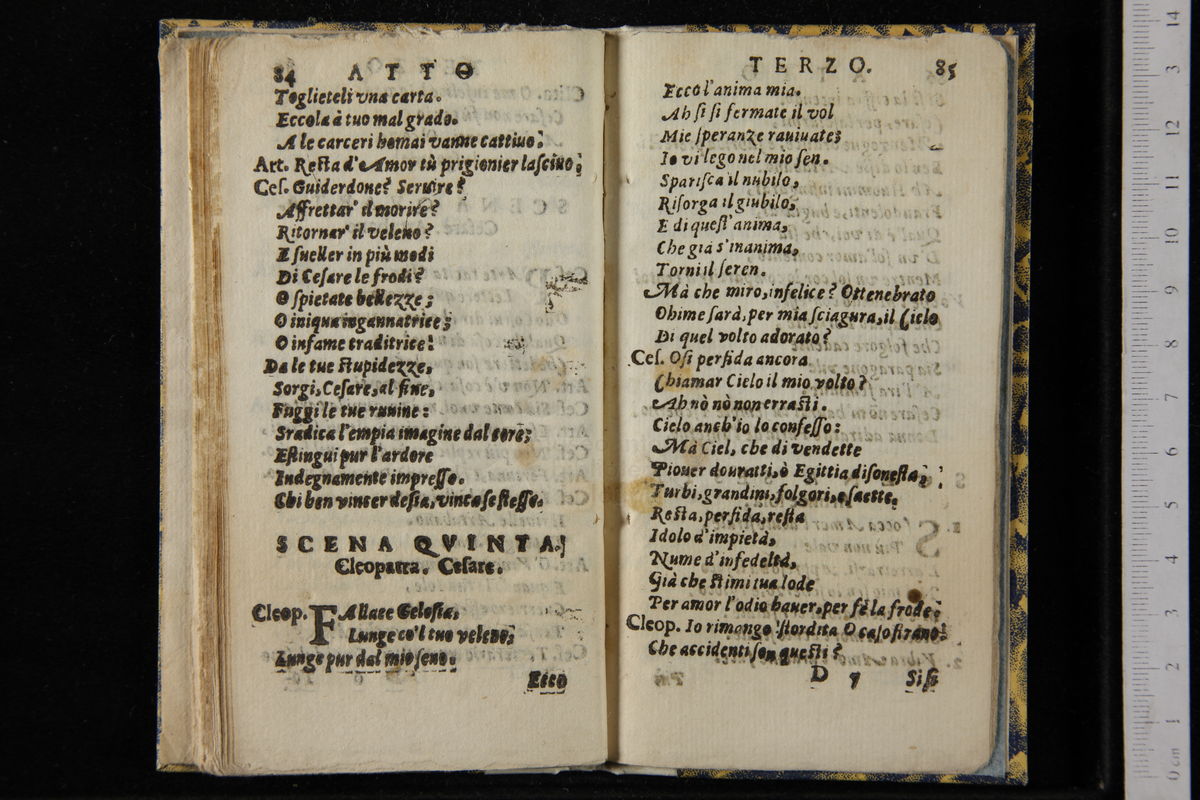 84 ATTO
Toglieteli vna carta.
Eccola à tuo mal grado.
A le carceri homai vanne cattiuo.
Art. Resta d'Amor tù prigionier lasciuo;
Ces. Guiderdone? Seruire?
Affrettar' il morire?
Ritornar' il veleno?
E sueller in più modi
Di Cesare le frodi?
O spietate bellezze;
O iniqua ingannatrice;
O infame traditrice!
Da le tue stupidezze,
Sorgi, Cesare, al fine,
Fuggi le tue ruuine:
Sradica l'empia imagine dal core;
Estingui pur l'ardore
Indegnamente impresso.
Chi ben vincer desia, vinca se stesso.
SCENA QVINTA.
Cleopatra. Cesare.
Cleop. FAllace Gelosia,
Lunge co'l tuo veleno;
Lunge pur dal mio seno.
Ecco
TERZO. 85
Ecco l'anima mia.
Ah si si fermate il vol
Mie speranze rauiuate;
Io vi lego nel mio sen.
Sparisca il nubilo,
Risorga il giubilo,
E di quest'anima,
Che già s'inanima,
Torni il seren.
Mà che miro, infelice? Ottenebrato
Ohime sarà, per mia sciagura, il Cielo
Di quel volto adorato?
Ces. Osi perfida ancora
Chiamar Cielo il mio volto?
Ah nò nò non errasti.
Cielo anch'io lo confesso:
Mà Ciel, che di vendette
Piouer douratti, ò Egittia disonesta,
Turbi, grandini, folgori, e saette.
Resta, perfida, resta
Idolo d'impietà,
Nume d'infedeltà,
Già che stimi tua lode
Per amor l'odio hauer, per fè la frode.
Cleop. Io rimango stordita O caso strano!
Che accidenti son questi?
D 7 Si si